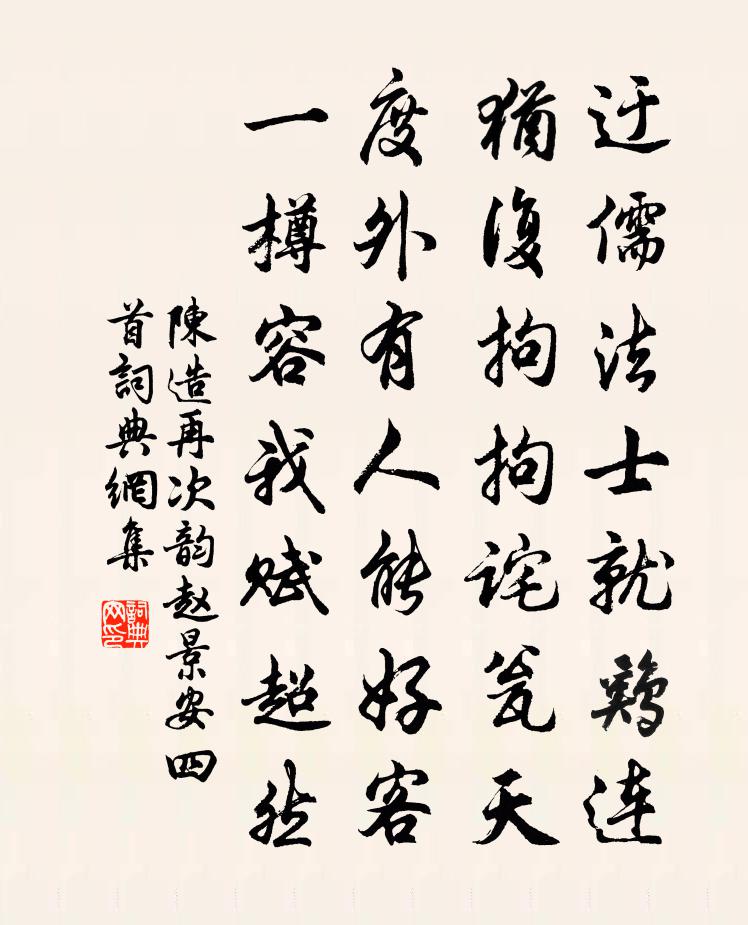 迂儒法士就鷄連
猶復拘拘詫瓮天
度外有人能好客
一樽容我賦超然
陳造再次韵赵景安四
首詞典網集
詞典网印